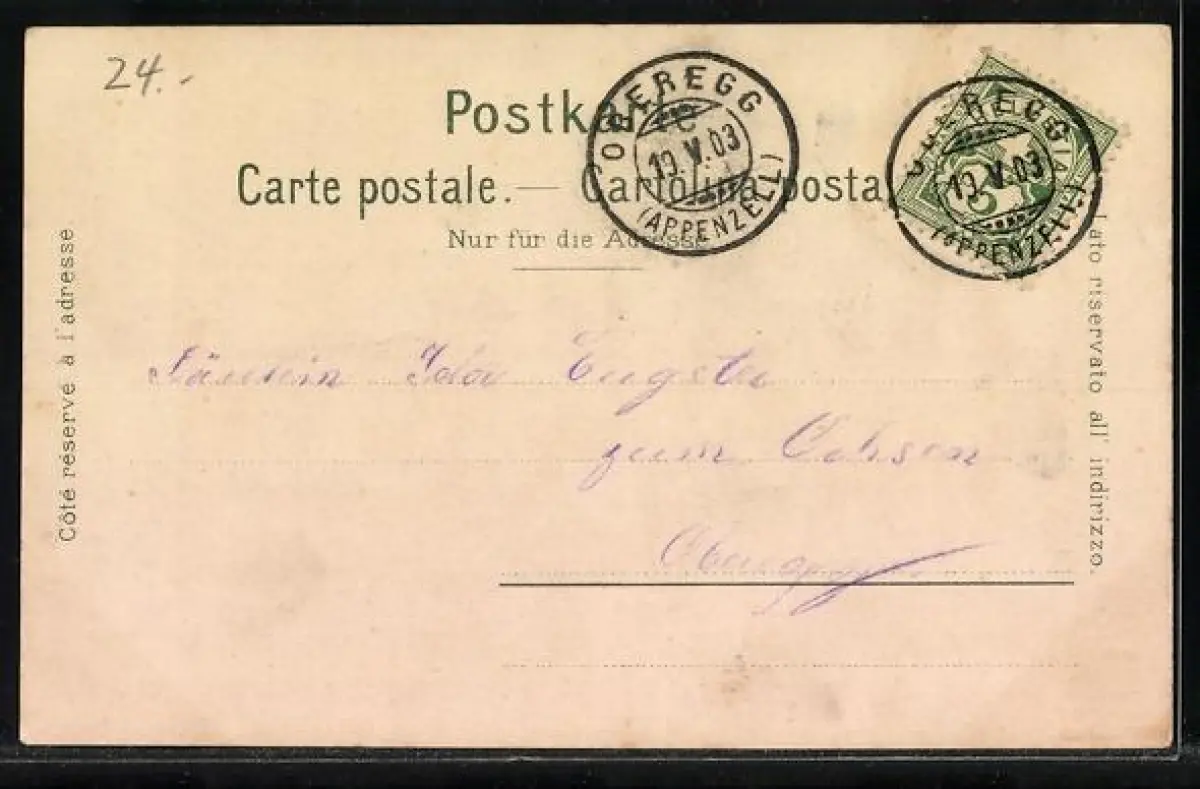 24.-
Postkar
Carte postale. — Cartolina posta
Nur für die Adresse
OBEREGG
19.V.03
(APPENZELL)
OBEREGG
19.V.03
(APPENZELL)
5
Côté réservé à l'adresse
Lato riservato all' indirizzo.
Fräulein Ida Eugster
zum Ochsen
Oberegg